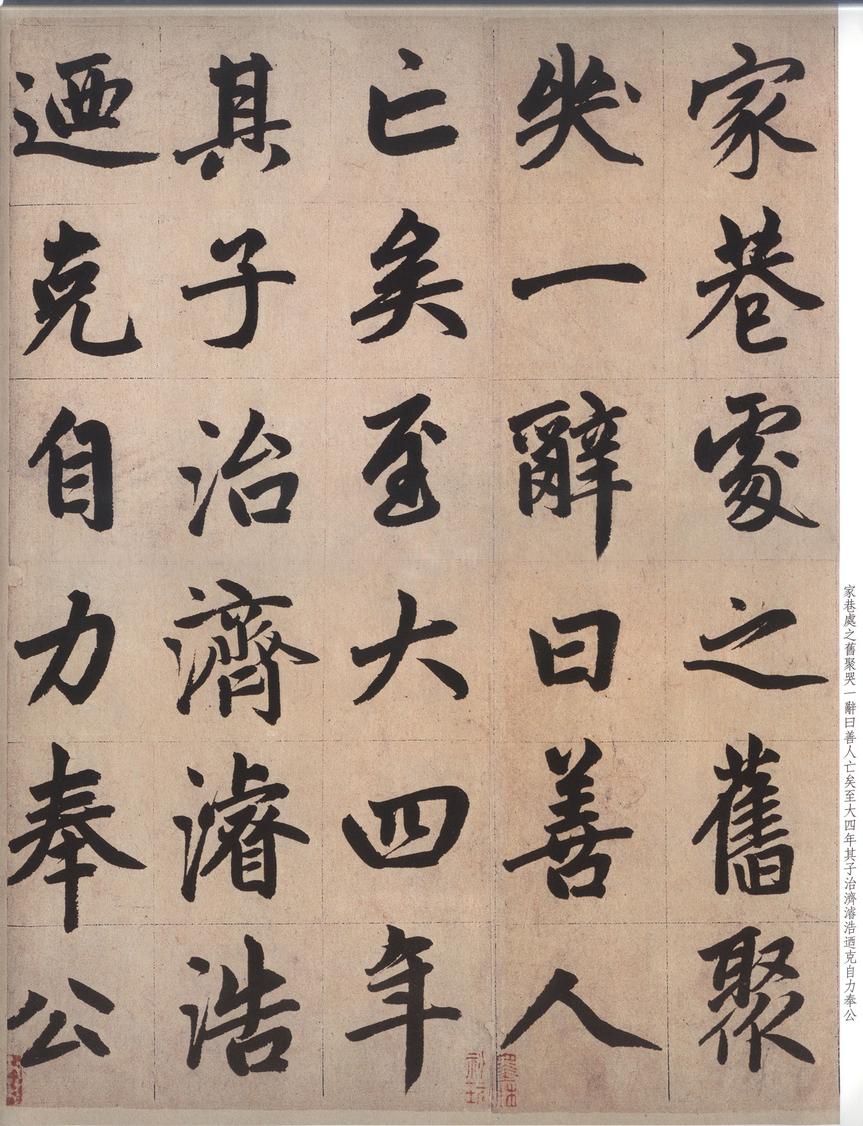 家巷處之舊聚
哭一辭曰善人
亡矣至大四年
其子治濟濬浩
迺克自力奉公
家巷處之舊聚哭一辭曰善人亡矣至大四年其子治濟濬浩迺克自力奉公